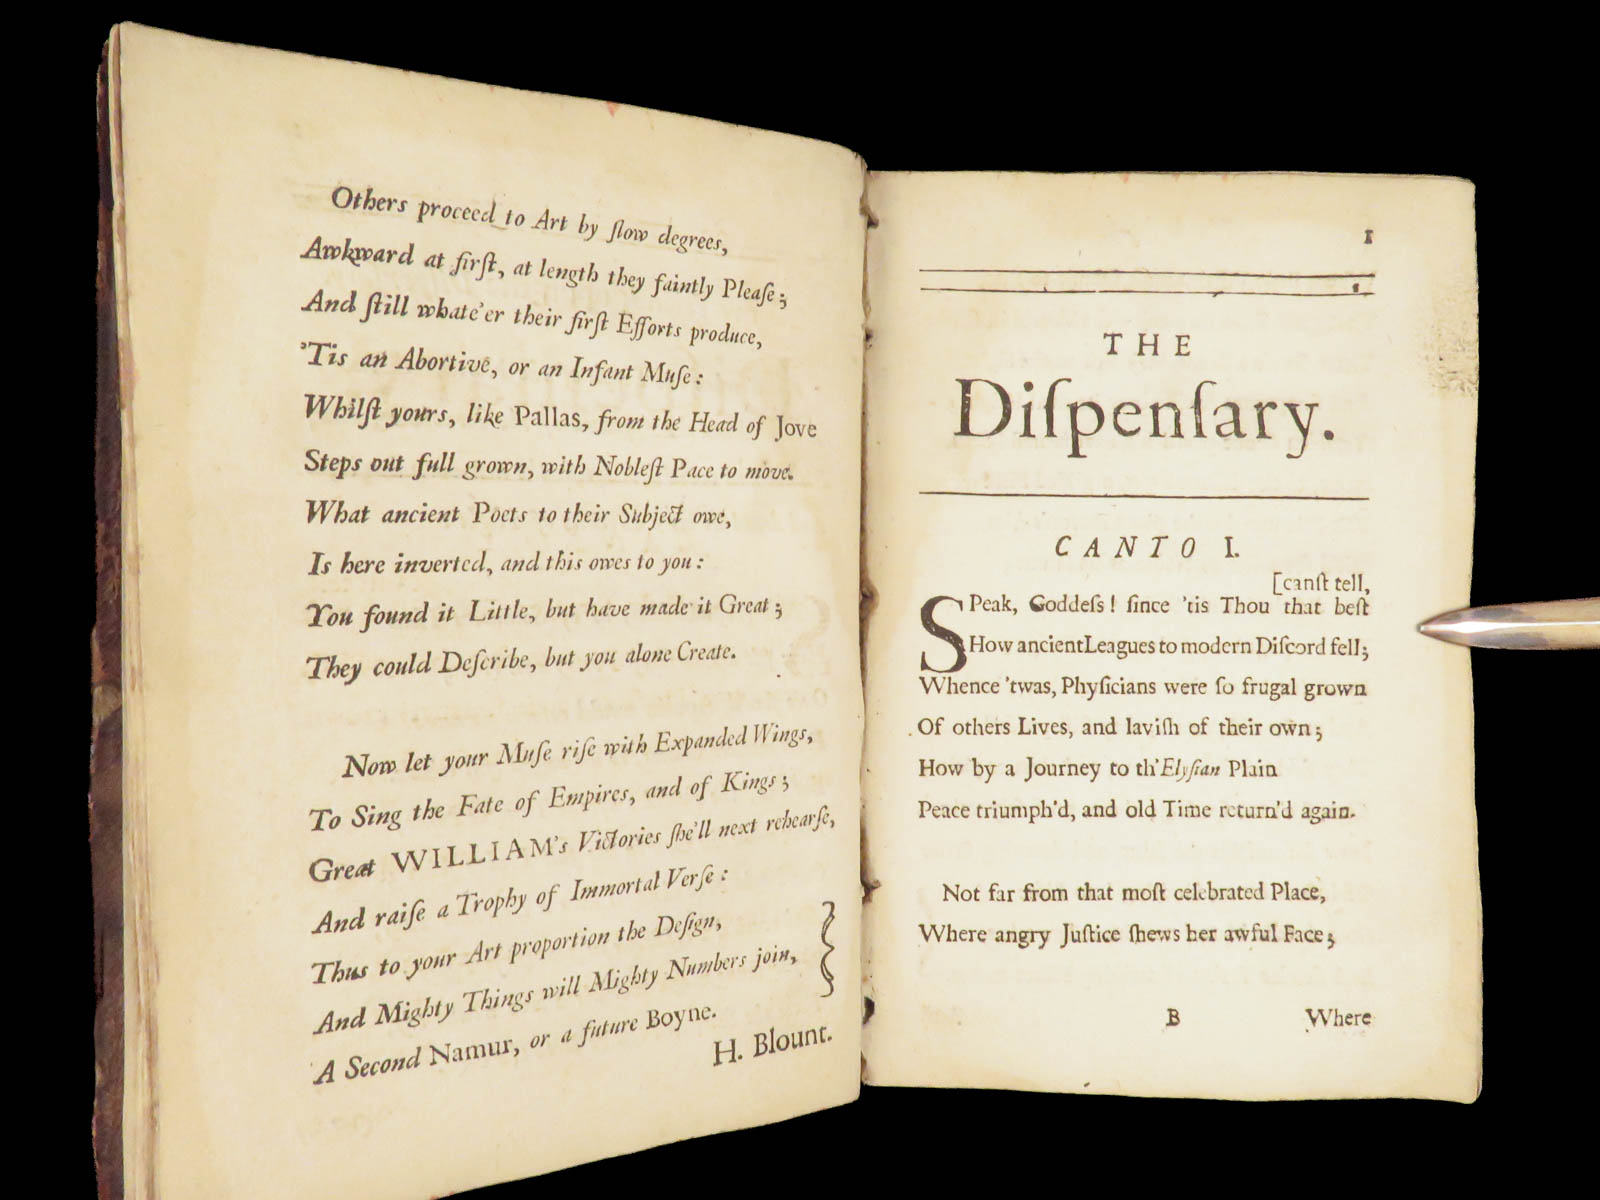 Others proceed to Art by ſlow degrees,
Awkward at firſt, at length they faintly Pleaſe;
And ſtill whate'er their firſt Efforts produce,
'Tis an Abortive, or an Infant Muſe:
Whilſt yours, like Pallas, from the Head of Jove
Steps out full grown, with Nobleſt Pace to move.
What ancient Poets to their Subject owe,
Is here inverted, and this owes to you:
You found it Little, but have made it Great;
They could Deſcribe, but you alone Create.
Now let your Muſe riſe with Expanded Wings,
To Sing the Fate of Empires, and of Kings;
Great WILLIAM's Victories ſhe'll next rehearſe,
And raiſe a Trophy of Immortal Verſe:
Thus to your Art proportion the Deſign,
And Mighty Things will Mighty Numbers join,
A Second Namur, or a future Boyne.
H. Blount.
1
THE
Diſpenſary.
CANTO I.
[canſt tell,
SPeak, Goddeſs! ſince 'tis Thou that beſt
How ancient Leagues to modern Diſcord fell;
Whence 'twas, Phyſicians were ſo frugal grown
Of others Lives, and laviſh of their own;
How by a Journey to th' Elyſian Plain
Peace triumph'd, and old Time return'd again.
Not far from that moſt celebrated Place,
Where angry Juſtice ſhews her awful Face;
B Where